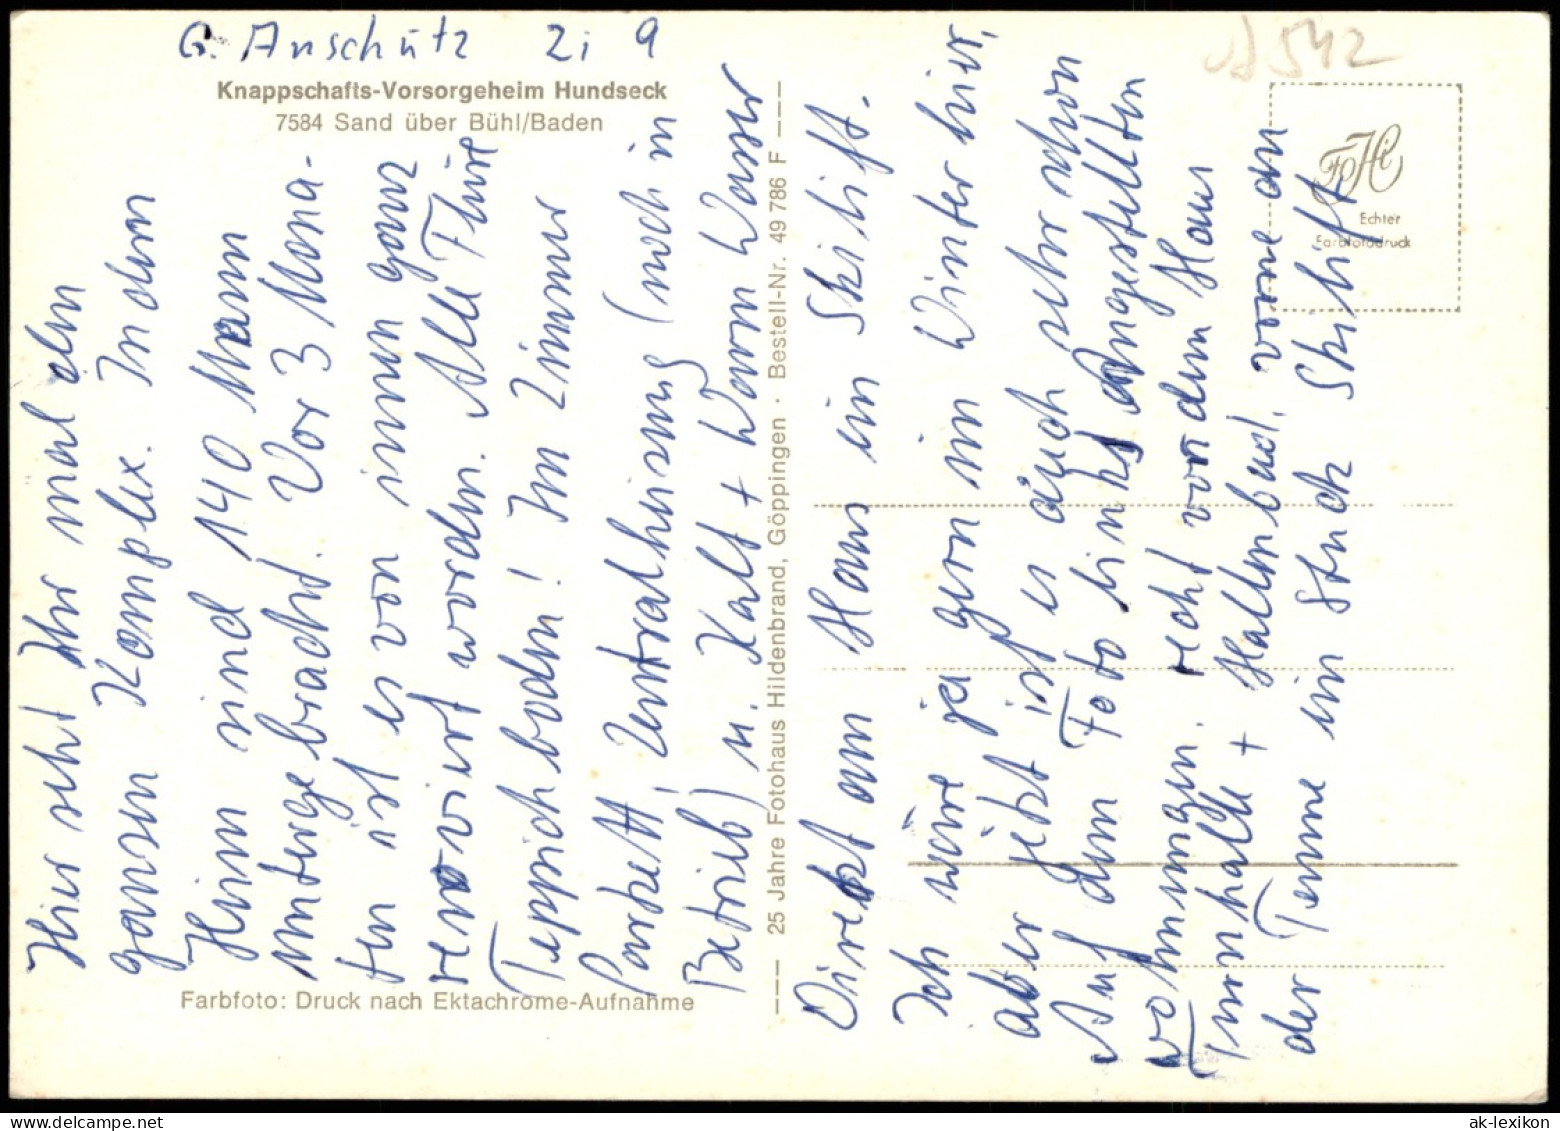 G. Anschütz Zi 9
Knappschafts-Vorsorgeheim Hundseck
7584 Sand über Bühl/Baden
Hier seht Ihr mal den
ganzen Komplex. In dem
Heim sind 140 Mann
untergebracht. Vor 3 Mona-
ten ist es von innen ganz
renoviert worden. Alle Flure
Teppichboden! Im Zimmer
Parkett, Zentralheizung (noch in
Betrieb) u. Kalt + Warm Wasser
Direkt am Haus ein Skilift.
Ich wäre ja gern im Winter hier,
aber jetzt ist es auch sehr schön
Auf dem Foto links Angestellten
wohnungen. recht vor dem Haus
Turnhalle + Hallenbad, vorne an
der Tenne ein Stück Skilift.
25 Jahre Fotohaus Hildenbrand, Göppingen · Bestell-Nr. 49 786 F
Farbfoto: Druck nach Ektachrome-Aufnahme
FoHi
Echter
Farbfotodruck
542
ak-lexikon.com